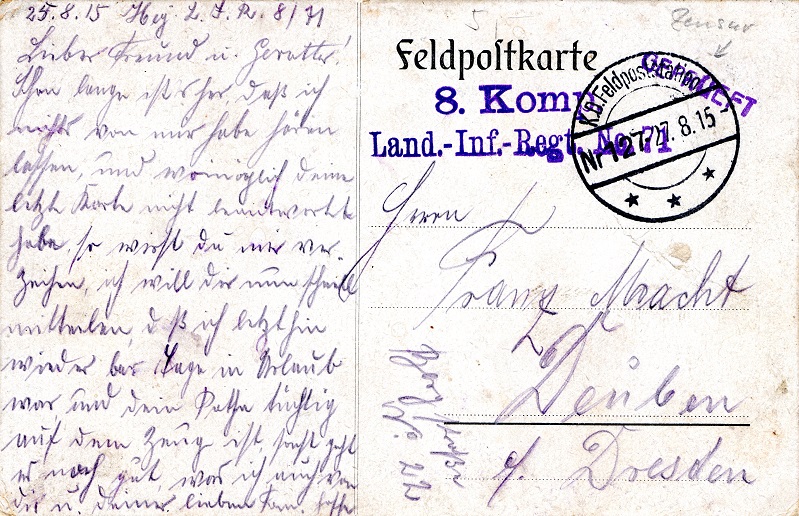 25.8.15 L. I. R. 8/71
Lieber Freund u. Gevatter!
Schon lange ist's her, daß ich
nichts von mir habe hören
lassen, und womöglich deine
letzte Karte nicht beantwortet
habe, so wirst du mir ver-
zeihen, ich will dir nun schnell
mitteilen, daß ich letzthin
wieder Tage in Urlaub
war und dein Pathe tüchtig
auf dem Zeug ist, sonst geht
es noch gut, was ich auch von
dir u. deiner lieben Fam. hoffe
5
Zensur
Feldpostkarte
GEPRÜFT
8. Komp.
Land.-Inf.-Regt. No 71
K.B. Feldpoststation
Nr 127. 27.8.15
Herrn
Franz Macht
Deuben
b. Dresden
Bergstraße
No. 22